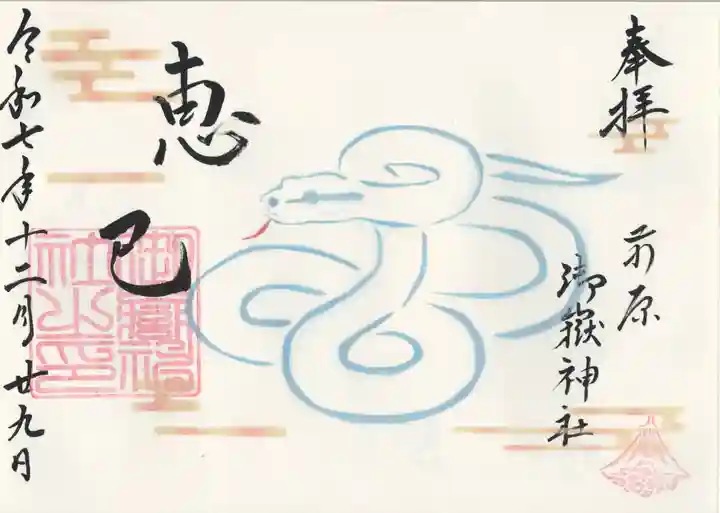 奉拝
前原
御嶽神社
恵巳
令和七年十二月廿九日
御嶽神
社之印